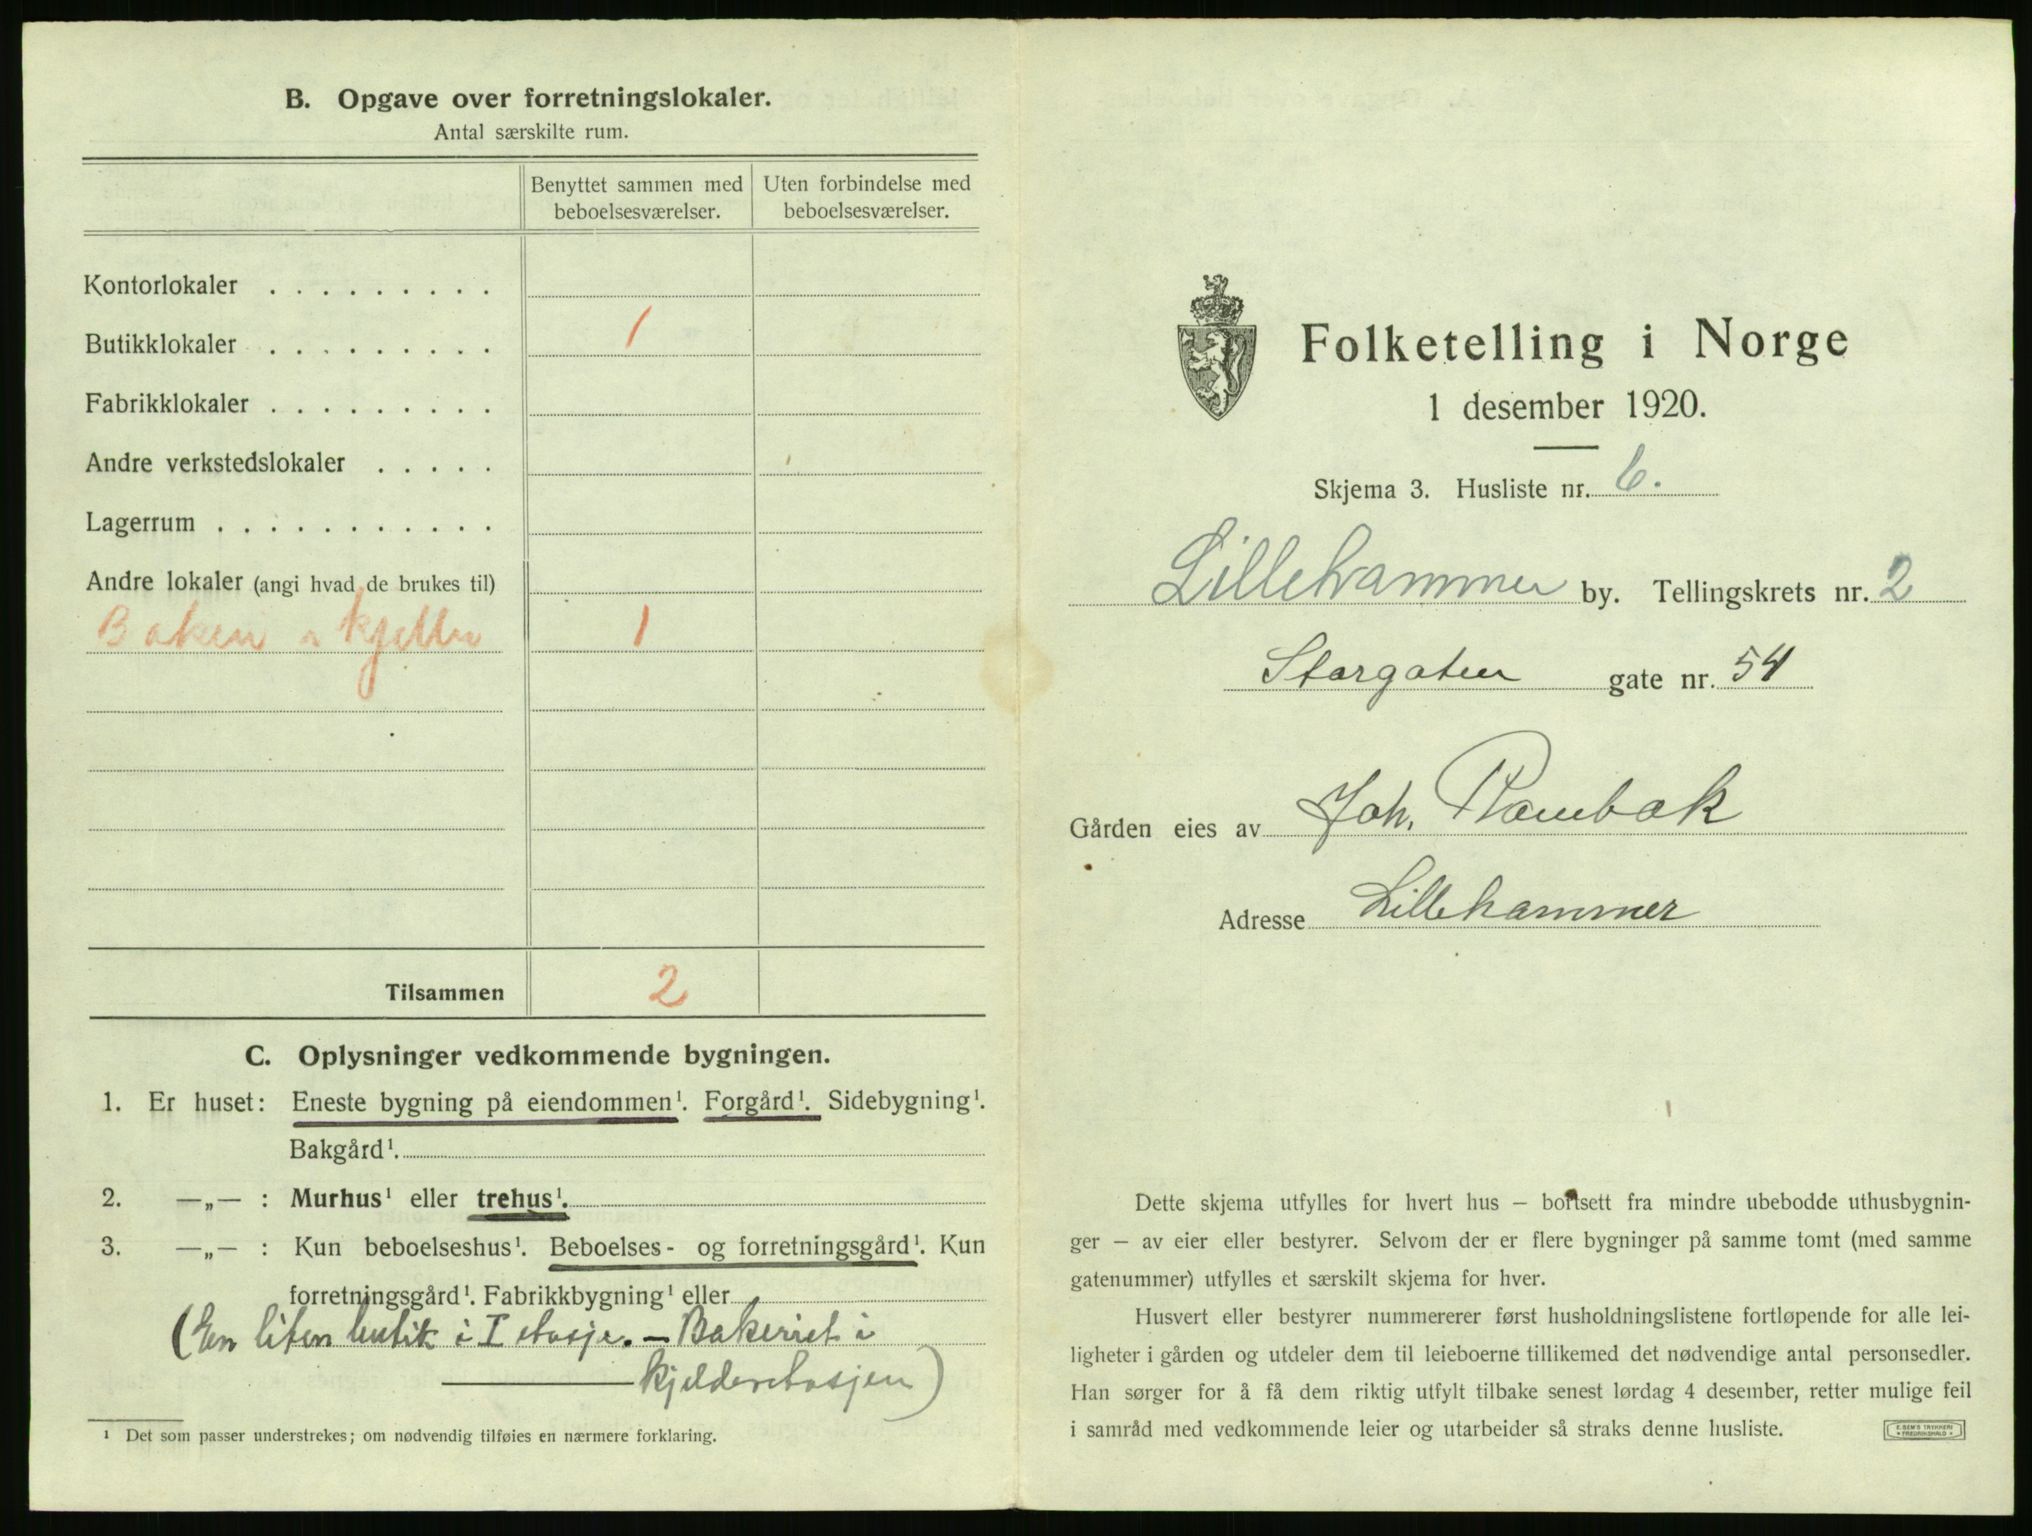 B. Opgave over forretningslokaler.
Antal særskilte rum.
Benyttet sammen med beboelsesværelser.
Uten forbindelse med beboelsesværelser.
Kontorlokaler . . . . . . . . .
Butikklokaler . . . . . . . . . 1
Fabrikklokaler . . . . . . . . .
Andre verkstedslokaler . . . . .
Lagerrum . . . . . . . . . . .
Andre lokaler (angi hvad de brukes til)
kjeller 1
Tilsammen 2
C. Oplysninger vedkommende bygningen.
1. Er huset: Eneste bygning på eiendommen¹. Forgård¹. Sidebygning¹.
Bakgård¹.
2. —„— : Murhus¹ eller trehus¹.
3. —„— : Kun beboelseshus¹. Beboelses- og forretningsgård¹. Kun
forretningsgård¹. Fabrikkbygning¹ eller
(En liten butik i I etasje. — Bakeriet i
kjelderetasjen)
¹ Det som passer understrekes; om nødvendig tilføies en nærmere forklaring.
Folketelling i Norge
1 desember 1920.
Skjema 3. Husliste nr. 6.
Lillehammer by. Tellingskrets nr. 2
Storgaten gate nr. 54
Gården eies av Joh. Rambak
Adresse Lillehammer
Dette skjema utfylles for hvert hus – bortsett fra mindre ubebodde uthusbygnin-
ger – av eier eller bestyrer. Selvom der er flere bygninger på samme tomt (med samme
gatenummer) utfylles et særskilt skjema for hver.
Husvert eller bestyrer nummererer først husholdningslistene fortløpende for alle lei-
ligheter i gården og utdeler dem til leieboerne tillikemed det nødvendige antal personsedler.
Han sørger for å få dem riktig utfylt tilbake senest lørdag 4 desember, retter mulige feil
i samråd med vedkommende leier og utarbeider så straks denne husliste.
E. SEM'S TRYKKERI
FREDRIKSHALD